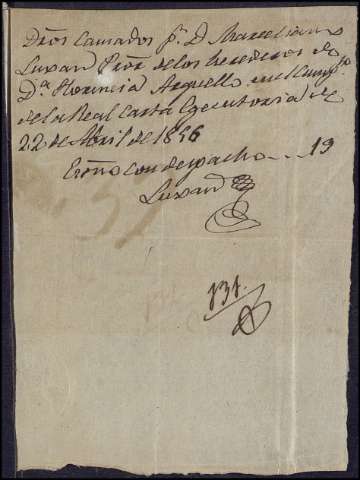 Dros Causados pr. D. Marcelino
Luxan Pror. de los herederos de
Da. Florencia Arguello en el cumpto.
de la Real Carta Executoria de
22 de Abril de 1856
con despacho . . . 19
Luxan
131.